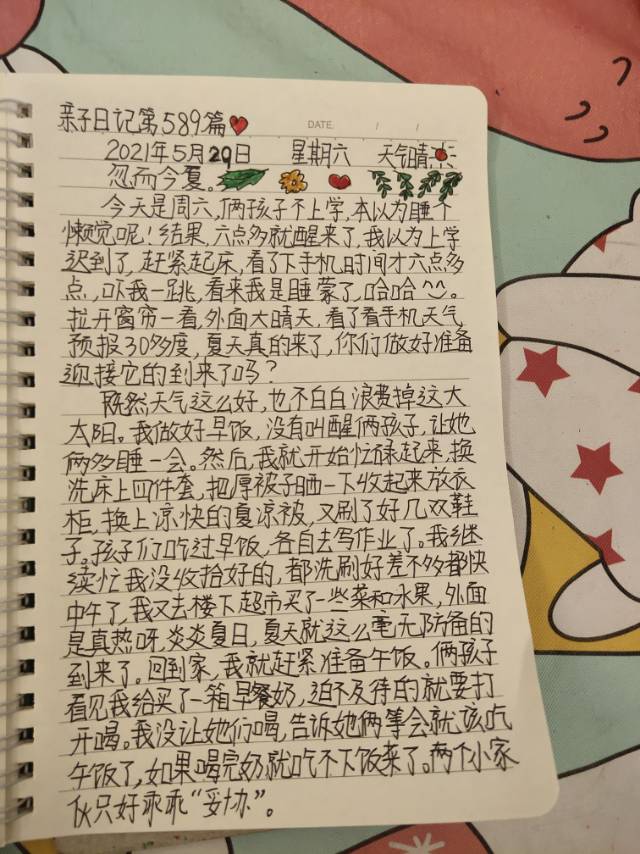 亲子日记第589篇
DATE. / /
2021年5月29日 星期六 天气晴
忽而今夏。
今天是周六,俩孩子不上学,本以为睡个
懒觉呢!结果,六点多就醒来了,我以为上学
迟到了,赶紧起床,看了下手机,时间才六点多
点,吓我一跳,看来我是睡蒙了,哈哈^^。
拉开窗帘一看,外面大晴天,看了看手机天气
预报30多度,夏天真的来了,你们做好准备
迎接它的到来了吗?
既然天气这么好,也不白白浪费掉这大
太阳。我做好早饭,没有叫醒俩孩子,让她
俩多睡一会。然后,我就开始忙碌起来,换
洗床上四件套,把厚被子晒一下收起来放衣
柜,换上凉快的夏凉被,又刷了好几双鞋
子。孩子们吃过早饭,各自去写作业了。我继
续忙我没收拾好的,都洗刷好差不多都快
中午了,我又去楼下超市买了一些菜和水果,外面
是真热呀,炎炎夏日,夏天就这么毫无防备的
到来了。回到家,我就赶紧准备午饭。俩孩子
看见我给买了一箱早餐奶,迫不及待的就要打
开喝。我没让她们喝,告诉她俩等会就该吃
午饭了,如果喝完奶就吃不下饭来了。两个小家
伙只好乖乖“妥协”。